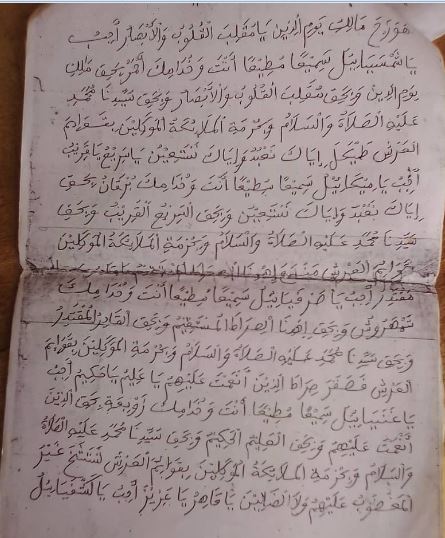 مالك يوم الدين يا مقلب القلوب والأبصار أجب
سميعا مطيعا أنت وخدامك الأحمر بحق مالك
يوم الدين وبحق مقلب القلوب والأبصار وبحق سيدنا محمد
عليه الصلاة والسلام وبحرمة الملائكة الموكلين بقوائم
العرش إياك نعبد وإياك نستعين يا سريع يا قريب
أجب يا ميكاييل سميعا مطيعا أنت وخدامك برقان بحق
إياك نعبد وإياك نستعين وبحق السريع القريب وبحق
سيدنا محمد عليه الصلاة والسلام وبحرمة الملائكة الموكلين
بقوائم العرش
مقتدر أجب يا صرفياييل سميعا مطيعا أنت وخدامك
شمهروش وبحق اهدنا الصراط المستقيم وبحق القادر المقتدر
وبحق سيدنا محمد عليه الصلاة والسلام وبحرمة الملائكة الموكلين بقوائم
العرش صراط الذين أنعمت عليهم يا عليم يا حكيم أجب
يا عنياييل سميعا مطيعا أنت وخدامك زوبعة بحق الذين
أنعمت عليهم وبحق العليم الحكيم وبحق سيدنا محمد عليه الصلاة
والسلام وبحرمة الملائكة الموكلين بقوائم العرش غير
المغضوب عليهم ولا الضالين يا قاهر يا عزيز أجب يا كسفياييل